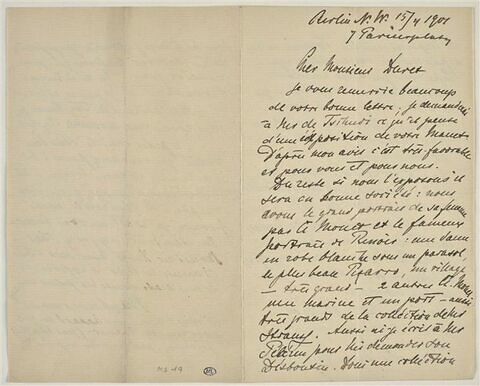 Berlin N.W. 15/4 1901
7 Pariserplatz
Cher Monsieur Duret
je vous remercie beaucoup
de votre bonne lettre; je demanderai
à Mr de Tschudi ce qu'il pense
d'une exposition de votre Manet
D'après mon avis c'est très favorable
et pour vous et pour nous.
Du reste si nous l'exposons il
sera en bonne société: nous
avons le grand portrait de sa femme
par Cl. Monet et le fameux
portrait de Renoir: une dame
en robe blanche sous un parasol,
le plus beau Pisarro, un village
- très grand - 2 autres Cl. Monet,
une marine et un port - aussi
très grands de la collection de Mr
Strauss. Aussi ai je écrit à Mr
pour lui demander son
Desboutin. Donc une collection
MS 49